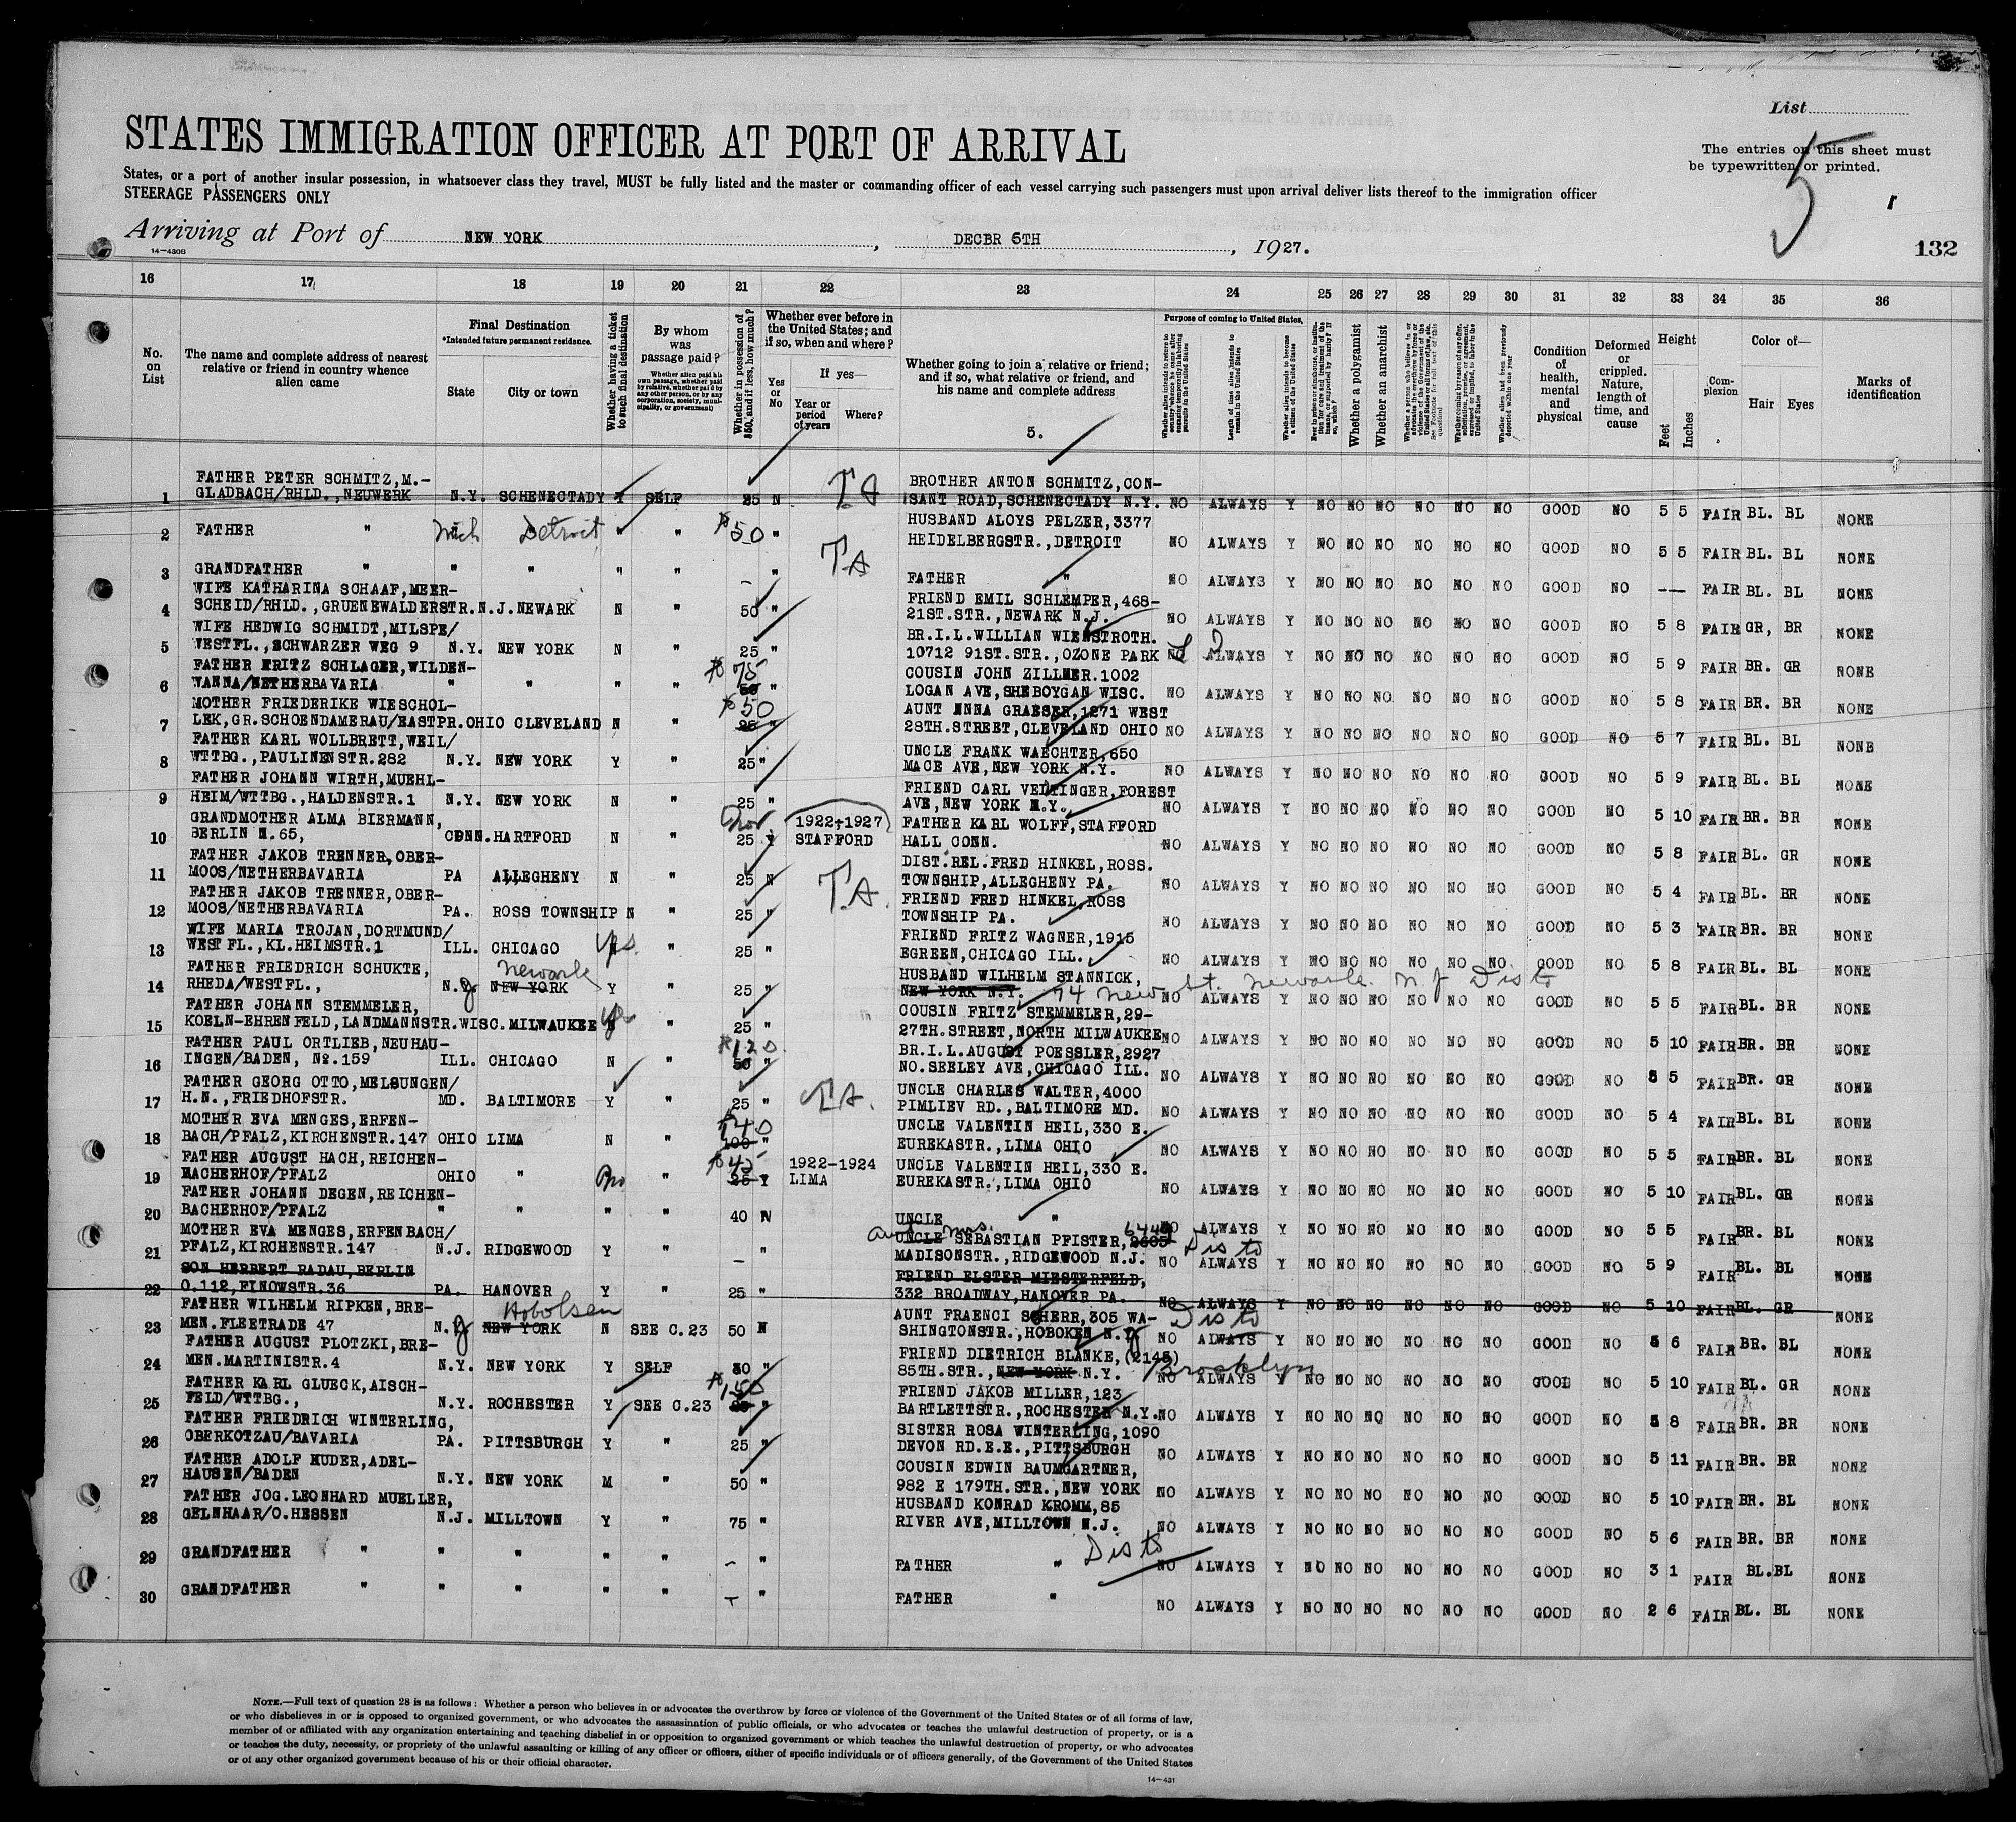 List
The entries on this sheet must
be typewritten or printed.
5
STATES IMMIGRATION OFFICER AT PORT OF ARRIVAL
States, or a port of another insular possession, in whatsoever class they travel, MUST be fully listed and the master or commanding officer of each vessel carrying such passengers must upon arrival deliver lists thereof to the immigration officer
STEERAGE PASSENGERS ONLY
Arriving at Port of NEW YORK, DECBR 6TH, 1927.
14-430B
132
16 17 18 19 20 21 22 23 24 25 26 27 28 29 30 31 32 33 34 35 36
No. on List
The name and complete address of nearest relative or friend in country whence alien came
Final Destination
*Intended future permanent residence.
State
City or town
Whether having a ticket to such final destination
By whom was passage paid?
Whether alien paid his own passage, whether paid by relative, whether paid by any other person, or by any corporation, society, municipality, or government)
Whether in possession of $50, and if less, how much?
Whether ever before in the United States; and if so, when and where?
Yes or No
If yes—
Year or period of years
Where?
Whether going to join a relative or friend; and if so, what relative or friend, and his name and complete address
5.
Purpose of coming to United States.
Length of time alien intends to remain in the United States
Whether alien intends to become a citizen of the United States
Whether a polygamist
Whether an anarchist
Condition of health, mental and physical
Deformed or crippled. Nature, length of time, and cause
Height
Feet
Inches
Complexion
Color of—
Hair
Eyes
Marks of identification
FATHER PETER SCHMITZ, M.- BROTHER ANTON SCHMITZ, CON-
1 GLADBACH/RHLD., NEUWERK N.Y. SCHENECTADY Y SELF 25 N TA SANT ROAD, SCHENECTADY N.Y. NO ALWAYS Y NO NO NO NO NO NO GOOD NO 5 5 FAIR BL. BL NONE
HUSBAND ALOYS PELZER, 3377
2 FATHER " Mich Detroit " " $50 " HEIDELBERGSTR., DETROIT NO ALWAYS Y NO NO NO NO NO NO GOOD NO 5 5 FAIR BL. BL NONE
3 GRANDFATHER " " " " " - " TA FATHER " NO ALWAYS Y NO NO NO NO NO NO GOOD NO --- FAIR BL. BL NONE
WIFE KATHARINA SCHAAF, MEER- FRIEND EMIL SCHLEMPER, 468-
4 SCHEID/RHLD., GRUENEWALDERSTR. N.J. NEWARK N " 50 " 21ST. STR., NEWARK N.J. NO ALWAYS Y NO NO NO NO NO NO GOOD NO 5 8 FAIR GR, BR NONE
WIFE HEDWIG SCHMIDT, MILSPE/ BR.I.L. WILLIAN WIENSTROTH.
5 WESTFL., SCHWARZER WEG 9 N.Y. NEW YORK N " 25 " 10712 91ST. STR., OZONE PARK NO ALWAYS Y NO NO NO NO NO NO GOOD NO 5 9 FAIR BR. GR NONE
FATHER FRITZ SCHLAGER, WILDEN- $75 COUSIN JOHN ZILLMER. 1002
6 WANNA/NETHERBAVARIA " " " " 50 " LOGAN AVE, SHEBOYGAN WISC. NO ALWAYS Y NO NO NO NO NO NO GOOD NO 5 8 FAIR BR. BR NONE
MOTHER FRIEDERIKE WIESCHOL- $50 AUNT ANNA GRAESER, 1271 WEST
7 LEK, GR. SCHOENDAMERAU/EASTPR. OHIO CLEVELAND N " 25 " 28TH. STREET, CLEVELAND OHIO NO ALWAYS Y NO NO NO NO NO NO GOOD NO 5 7 FAIR BL. BL NONE
FATHER KARL WOLLBRETT, WEIL/ UNCLE FRANK WAECHTER, 650
8 WTTBG., PAULINENSTR. 282 N.Y. NEW YORK Y " 25 " MACE AVE, NEW YORK N.Y. NO ALWAYS Y NO NO NO NO NO NO GOOD NO 5 9 FAIR BL. BL NONE
FATHER JOHANN WIRTH, MUEHL- FRIEND CARL VEITINGER, FOREST
9 HEIM/WTTBG., HALDENSTR. 1 N.Y. NEW YORK N " 25 " AVE, NEW YORK N.Y. NO ALWAYS Y NO NO NO NO NO NO GOOD NO 5 10 FAIR BR. BR NONE
GRANDMOTHER ALMA BIERMANN, 1922-1927 FATHER KARL WOLFF, STAFFORD
10 BERLIN N. 65, CONN. HARTFORD N " 25 Y STAFFORD HALL CONN. NO ALWAYS Y NO NO NO NO NO NO GOOD NO 5 8 FAIR BL. GR NONE
FATHER JAKOB TRENNER, OBER- DIST. REL. FRED HINKEL, ROSS.
11 MOOS/NETHERBAVARIA PA ALLEGHENY N " 25 N TA. TOWNSHIP, ALLEGHENY PA. NO ALWAYS Y NO NO NO NO NO NO GOOD NO 5 4 FAIR BL. BR NONE
FATHER JAKOB TRENNER, OBER- FRIEND FRED HINKEL, ROSS
12 MOOS/NETHERBAVARIA PA. ROSS TOWNSHIP N " 25 " TOWNSHIP PA. NO ALWAYS Y NO NO NO NO NO NO GOOD NO 5 3 FAIR BR. BR NONE
WIFE MARIA TROJAN, DORTMUND/ FRIEND FRITZ WAGNER, 1915
13 WESTFL., KL. HEIMSTR. 1 ILL. CHICAGO yes " 25 " EGREEN, CHICAGO ILL. NO ALWAYS Y NO NO NO NO NO NO GOOD NO 5 8 FAIR BL. BL NONE
FATHER FRIEDRICH SCHUKTE, Newark HUSBAND WILHELM STANNICK,
14 RHEDA/WESTFL., N.J NEW YORK Y " 25 " NEW YORK N.Y. 74 New St. Newark N J Dis to NO ALWAYS Y NO NO NO NO NO NO GOOD NO 5 5 FAIR BL. BR NONE
FATHER JOHANN STEMMELER, COUSIN FRITZ STEMMELER, 29-
15 KOELN-EHRENFELD, LANDMANNSTR. WISC. MILWAUKEE yes " 25 " 27TH. STREET, NORTH MILWAUKEE NO ALWAYS Y NO NO NO NO NO NO GOOD NO 5 10 FAIR BR. BR NONE
FATHER PAUL ORTLIEB, NEUHAU- $120 BR.I.L. AUGUST POESSLER, 2927
16 INGEN/BADEN, No. 159 ILL. CHICAGO N " 50 " NO. SEELEY AVE, CHICAGO ILL. NO ALWAYS Y NO NO NO NO NO NO GOOD NO 5 5 FAIR BR. GR NONE
FATHER GEORG OTTO, MELSUNGEN/ UNCLE CHARLES WALTER, 4000
17 H.N., FRIEDHOFSTR. MD. BALTIMORE Y " 25 " TA. PIMLIEV RD., BALTIMORE MD. NO ALWAYS Y NO NO NO NO NO NO GOOD NO 5 4 FAIR BL. BL NONE
MOTHER EVA MENGES, ERFEN- $40 UNCLE VALENTIN HEIL, 330 E.
18 BACH/PFALZ, KIRCHENSTR. 147 OHIO LIMA N " 100 " EUREKASTR., LIMA OHIO NO ALWAYS Y NO NO NO NO NO NO GOOD NO 5 5 FAIR BR. BL NONE
FATHER AUGUST HACH, REICHEN- $45 1922-1924 UNCLE VALENTIN HEIL, 330 E.
19 BACHERHOF/PFALZ OHIO " " 25 Y LIMA EUREKASTR., LIMA OHIO NO ALWAYS Y NO NO NO NO NO NO GOOD NO 5 10 FAIR BL. GR NONE
FATHER JOHANN DEGEN, REICHEN-
20 BACHERHOF/PFALZ " " " " 40 N UNCLE " NO ALWAYS Y NO NO NO NO NO NO GOOD NO 5 5 FAIR BR. BL NONE
MOTHER EVA MENGES, ERFENBACH/ aunt Mrs. UNCLE SEBASTIAN PFISTER, 2605 Dis to
21 PFALZ, KIRCHENSTR. 147 N.J. RIDGEWOOD Y " - " MADISONSTR., RIDGEWOOD N.J. NO ALWAYS Y NO NO NO NO NO NO GOOD NO 5 9 FAIR BL. BL NONE
SON HERBERT RADAU, BERLIN FRIEND ELSTER MIESTERFELD,
22 O.112, FINOWSTR. 36 PA. HANOVER Y " 25 " 332 BROADWAY, HANOVER PA. NO ALWAYS Y NO NO NO NO NO NO GOOD NO 5 10 FAIR BL. GR NONE
FATHER WILHELM RIPKEN, BRE- Hoboken AUNT FRAENCI SCHERR, 305 WA- Dis to
23 MEN. FLEETRADE 47 N.J NEW YORK N SEE C.23 50 N SHINGTONSTR., HOBOKEN N.J NO ALWAYS Y NO NO NO NO NO NO GOOD NO 5 6 FAIR BR. BL NONE
FATHER AUGUST PLOTZKI, BRE- FRIEND DIETRICH BLANKE, (2145)
24 MEN. MARTINISTR. 4 N.Y. NEW YORK Y SELF 30 " 85TH. STR., NEW YORK N.Y. Brooklyn NO ALWAYS Y NO NO NO NO NO NO GOOD NO 5 10 FAIR BL. GR NONE
FATHER KARL GLUECK, AISCH- $150 FRIEND JAKOB MILLER, 123
25 FELD/WTTBG., N.Y. ROCHESTER Y SEE C.23 " BARTLETTSTR., ROCHESTER N.Y. NO ALWAYS Y NO NO NO NO NO NO GOOD NO 5 8 FAIR BR. BR NONE
FATHER FRIEDRICH WINTERLING, SISTER ROSA WINTERLING, 1090
26 OBERKOTZAU/BAVARIA PA. PITTSBURGH Y " 25 " DEVON RD.E.E., PITTSBURGH NO ALWAYS Y NO NO NO NO NO NO GOOD NO 5 11 FAIR BR. BR NONE
FATHER ADOLF HUDER, ADEL- COUSIN EDWIN BAUMGARTNER,
27 HAUSEN/BADEN N.Y. NEW YORK M " 50 " 982 E 179TH. STR., NEW YORK NO ALWAYS Y NO NO NO NO NO NO GOOD NO 5 10 FAIR BR. BL NONE
FATHER JOG. LEONHARD MUELLER, HUSBAND KONRAD KROMM, 85
28 GELNHAAR/O. HESSEN N.J. MILLTOWN Y " 75 " RIVER AVE, MILLTOWN N.J. NO ALWAYS Y NO NO NO NO NO NO GOOD NO 5 6 FAIR BR. BR NONE
Dis to
29 GRANDFATHER " " " " " - " FATHER " NO ALWAYS Y NO NO NO NO NO NO GOOD NO 3 1 FAIR BL. BL NONE
30 GRANDFATHER " " " " " - " FATHER " NO ALWAYS Y NO NO NO NO NO NO GOOD NO 2 6 FAIR BL. BL NONE
NOTE.—Full text of question 28 is as follows: Whether a person who believes in or advocates the overthrow by force or violence of the Government of the United States or of all forms of law,
or who disbelieves in or is opposed to organized government, or who advocates the assassination of public officials, or who advocates or teaches the unlawful destruction of property, or is a
member of or affiliated with any organization entertaining and teaching disbelief in or opposition to organized government or which teaches the unlawful destruction of property, or who advocates
or teaches the duty, necessity, or propriety of the unlawful assaulting or killing of any officer or officers, either of specific individuals or of officers generally, of the Government of the United States
or of any other organized government because of his or their official character.
14-431